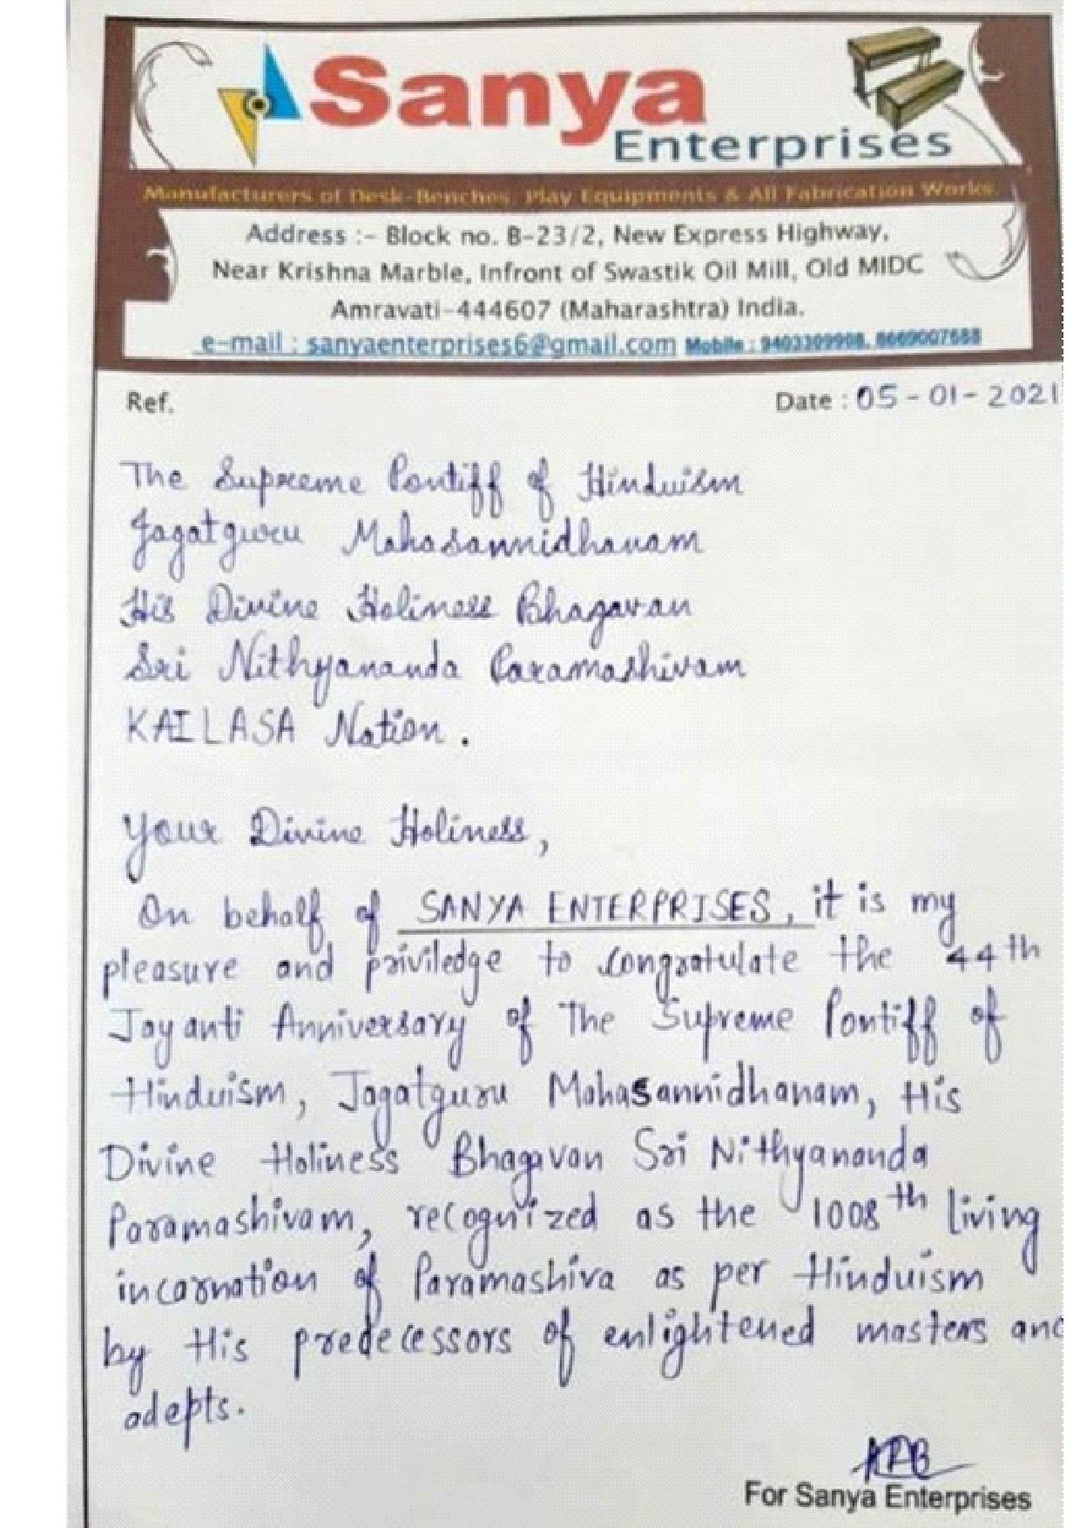 Sanya
Enterprises
Manufacturers of Desk-Benches, Play Equipments & All Fabrication Works.
Address :- Block no. B-23/2, New Express Highway,
Near Krishna Marble, Infront of Swastik Oil Mill, Old MIDC
Amravati-444607 (Maharashtra) India.
e-mail : sanyaenterprises6@gmail.com Mobile : 9403309908, 8669007688
Ref. Date : 05-01-2021
The Supreme Pontiff of Hinduism
Jagatguru Mahasannidhanam
His Divine Holiness Bhagavan
Sri Nithyananda Paramashivam
KAILASA Nation.
Your Divine Holiness,
On behalf of SANYA ENTERPRISES, it is my
pleasure and priviledge to congratulate the 44th
Jayanti Anniversary of The Supreme Pontiff of
Hinduism, Jagatguru Mahasannidhanam, His
Divine Holiness Bhagavan Sri Nithyananda
Paramashivam, recognized as the 1008th living
incarnation of Paramashiva as per Hinduism
by His predecessors of enlightened masters and
adepts.
For Sanya Enterprises